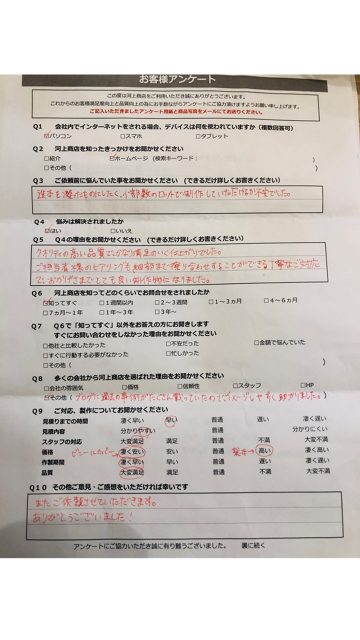 お客様アンケート
この度は河上商店をご利用いただき誠にありがとうございます。
これからのお客様満足度向上と品質向上の為にお手数ながらアンケートにご協力頂けますようお願い申し上げます。
ご記入いただきましたアンケート用紙と商品写真をメールにてお送りください。
Q1 会社内でインターネットをされる場合、デバイスは何を使われていますか（複数回答可）
☑パソコン □スマホ □タブレット
Q2 河上商店を知ったきっかけをお聞かせください
□紹介 ☑ホームページ（検索キーワード： ）
□その他（ ）
Q3 ご依頼前に悩んでいた事をお聞かせください（できるだけ詳しくお書きください）
Q4 悩みは解決されましたか
☑はい □いいえ
Q5 Q4の理由をお聞かせください（できるだけ詳しくお書きください）
クオリティの高い品質でかなり満足のいく仕上がりでした。
ご担当者様のヒアリングも細部まで擦り合わせすることができる丁寧なご対応
でしたおかげさまでとても良い制作物になりました。
Q6 河上商店を知ってどのくらいでお問合せをされましたか
☑知ってすぐ □1週間以内 □2～3週間 □1～3ヵ月 □4～6ヵ月
□7ヵ月～1年 □1年～3年 □3年～
Q7 Q6で「知ってすぐ」以外をお答えの方にお聞きします
すぐにお問い合わせをしなかった理由をお聞かせください
□他社と比較したかった □不安だった □金額で悩んでいた
□すぐに行動する必要がなかった □忙しかった
□その他（ ）
Q8 多くの会社から河上商店を選ばれた理由をお聞かせください
□会社の雰囲気 □価格 □信頼性 □スタッフ □HP
☑その他（ブログに過去の事例がたくさん載っていたのでイメージしやすく助かりました。）
Q9 ご対応、製作についてお聞かせください
見積りまでの時間 凄く早い 早い 普通 遅い 凄く遅い
見積内容 分かりやすい 普通 分かりにくい
スタッフの対応 大変満足 満足 普通 不満 大変不満
価格 ビニールカバー→ 凄く安い 安い 普通 製本→ 高い 凄く高い
作製期間 凄く早い 早い 普通 遅い 凄く遅い
品質 大変満足 満足 普通 不満 大変不満
Q10 その他ご意見・ご感想をいただければ幸いです
またご依頼させていただきます。
ありがとうございました！
アンケートにご協力いただき誠に有り難うございました。 裏に続く